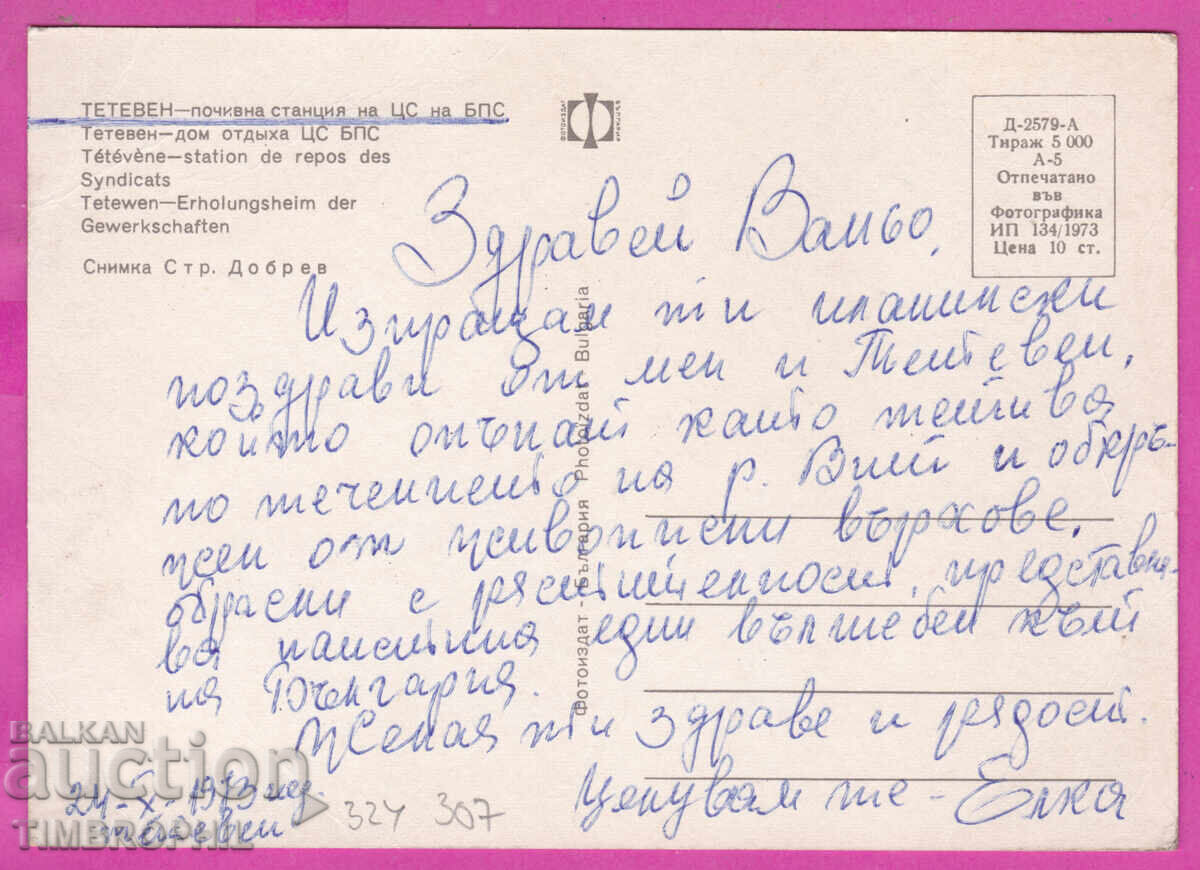 ТЕТЕВЕН—почивна станция на ЦС на БПС
Тетевен—дом отдыха ЦС БПС
Tétévène—station de repos des
Syndicats
Tetewen—Erholungsheim der
Gewerkschaften
Снимка Стр. Добрев
ФОТОИЗДАТ
БЪЛГАРИЯ
Д-2579-А
Тираж 5 000
А-5
Отпечатано
във
Фотографика
ИП 134/1973
Цена 10 ст.
Фотоиздат - България Photoizdat Bulgaria
Здравей Ваньо,
Изпращам ти планински
поздрави от мен и Тетевен,
който опънат като тетива
по течението на р. Вит и обкръ-
жен от живописни върхове,
обрасни с растителност, представля-
ва наистина един вълшебен кът
на България.
Желая ти здраве и радост.
Целувам те - Елка
24-X-1973 год.
Тетевен
324 307
BALKAN
auction
TIMBROPHIL